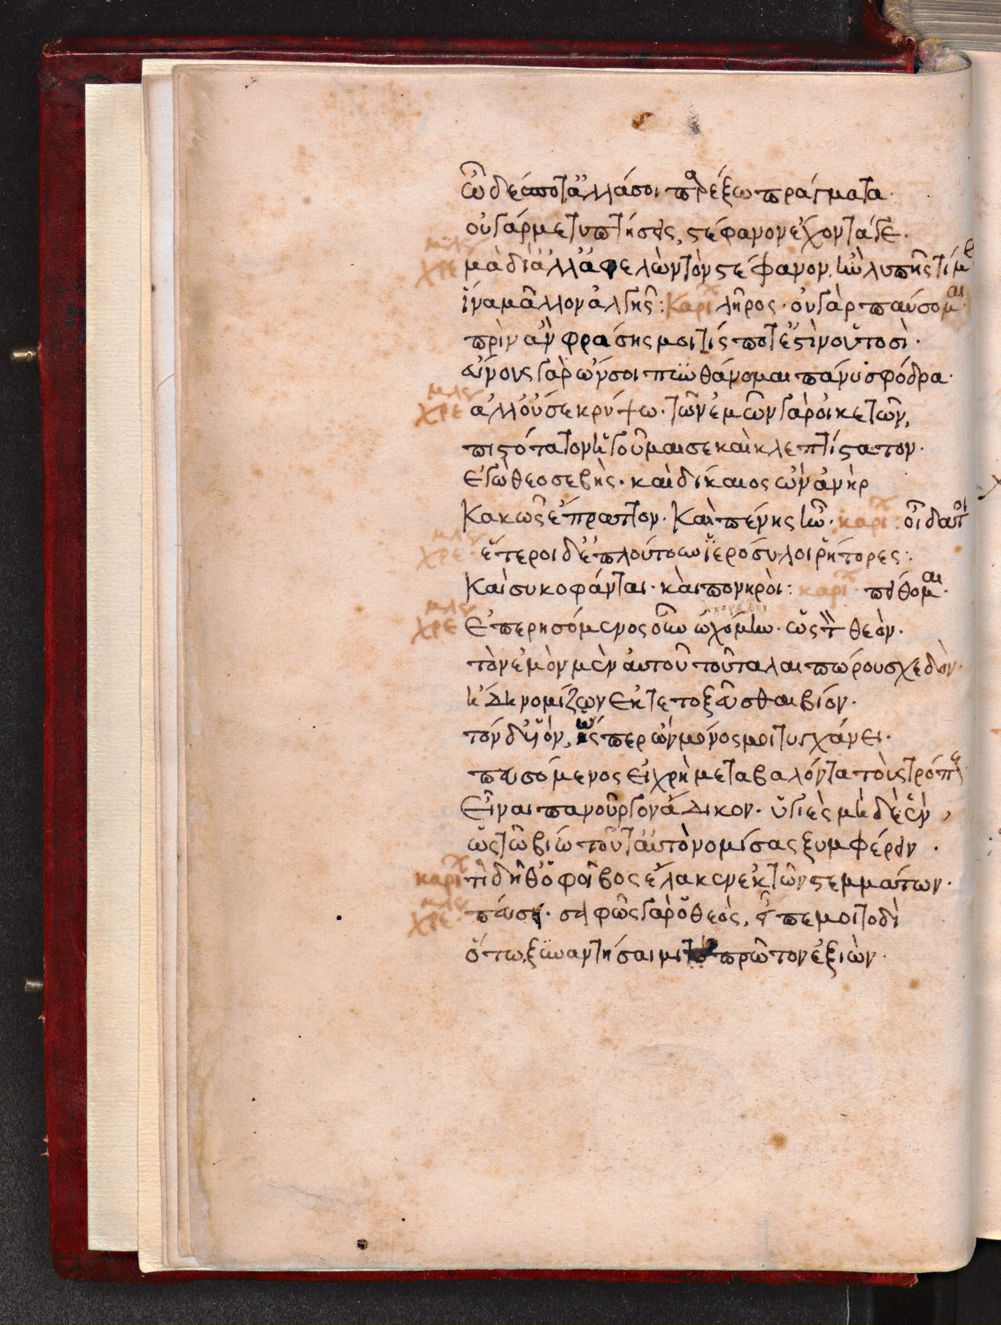 ὦ δέσποτ' ἀλλά σοι παρέξω πράγματα.
οὐ γάρ με τυπτήσεις, στέφανον ἔχοντά γε.
χρε μὰ δί' ἀλλ' ἀφελὼν τὸν στέφανον, ἢν λυπῆς τί με
ἵνα μᾶλλον ἀλγῆς: καρι λῆρος· οὐ γὰρ παύσομαι
πρὶν ἂν φράσης μοι τίς ποτ' ἐστὶν οὑτοσὶ.
εὔνους γὰρ ὤν σοι πυνθάνομαι πάνυ σφόδρα.
χρε ἀλλ' οὔ σε κρύψω. τῶν ἐμῶν γὰρ οἰκετῶν,
πιστότατον ἡγοῦμαι σε καὶ κλεπτίστατον.
ἐγὼ θεοσεβὴς. καὶ δίκαιος ὢν ἀνὴρ
κακῶς ἔπραττον. καὶ πένης ἦν. καρι: οἶδά τοι
χρε ἕτεροι δ' ἐπλούτουν ἱερόσυλοι ῥήτορες:
καὶ συκοφάνται. καὶ πονηροὶ: καρι πείθομαι.
χρε ἐπερησόμενος οὖν ὠχόμην. ὡς τὸν θεὸν.
τὸν ἐμὸν μὲν αὐτοῦ τοῦ ταλαιπώρου σχεδὸν.
ἤδη νομίζων ἐκτετοξεῦσθαι βίον.
τόν δ' υἱὸν, ὥσπερ ὢν μόνος μοι τυγχάνει.
πευσόμενος εἰ χρὴ μεταβαλόντα τοὺς τρόπους
εἶναι πανοῦργον ἄδικον. ὑγιὲς μηδὲ ἓν,
ὡς τῶ βίω τοῦτ' αὐτὸ νομίσας ξυμφέρειν.
καρι τὶ δῆθ' ὁ φοῖβος ἔλακεν ἐκ τῶν στεμμάτων.
χρε πεύσει. σαφῶς γὰρ ὁ θεὸς, εἶπέ μοι τοδὶ
ὅτω ξυναντήσαιμι πρῶτον ἐξιὼν.